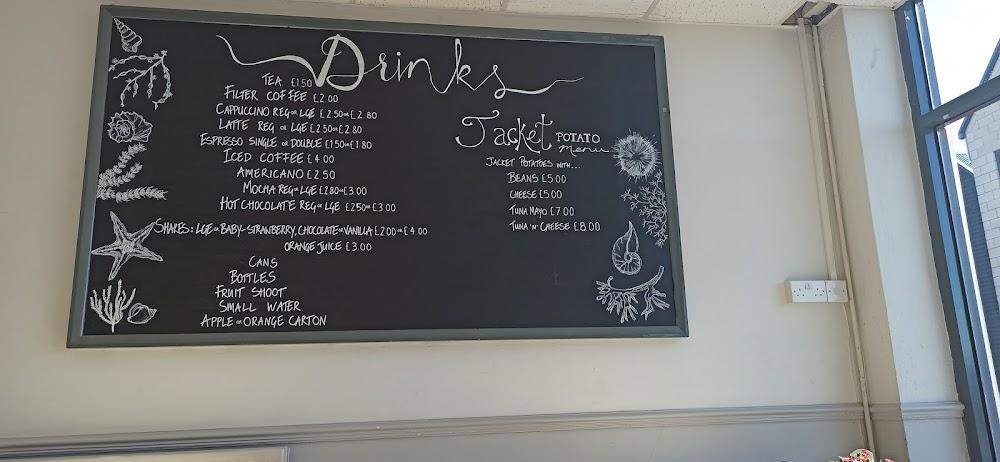 Drinks
TEA £1.50
FILTER COFFEE £2.00
CAPPUCCINO REG OR LGE £2.50 OR £2.80
LATTE REG OR LGE £2.50 OR £2.80
ESPRESSO SINGLE OR DOUBLE £1.50 OR £1.80
ICED COFFEE £4.00
AMERICANO £2.50
MOCHA REG OR LGE £2.80 OR £3.00
HOT CHOCOLATE REG OR LGE £2.50 OR £3.00
SHAKES: LGE OR BABY - STRAWBERRY, CHOCOLATE OR VANILLA £2.00 OR £4.00
ORANGE JUICE £3.00
CANS
BOTTLES
FRUIT SHOOT
SMALL WATER
APPLE OR ORANGE CARTON
Jacket POTATO
Menu
JACKET POTATOES WITH...
BEANS £5.00
CHEESE £5.00
TUNA MAYO £7.00
TUNA 'N' CHEESE £8.00